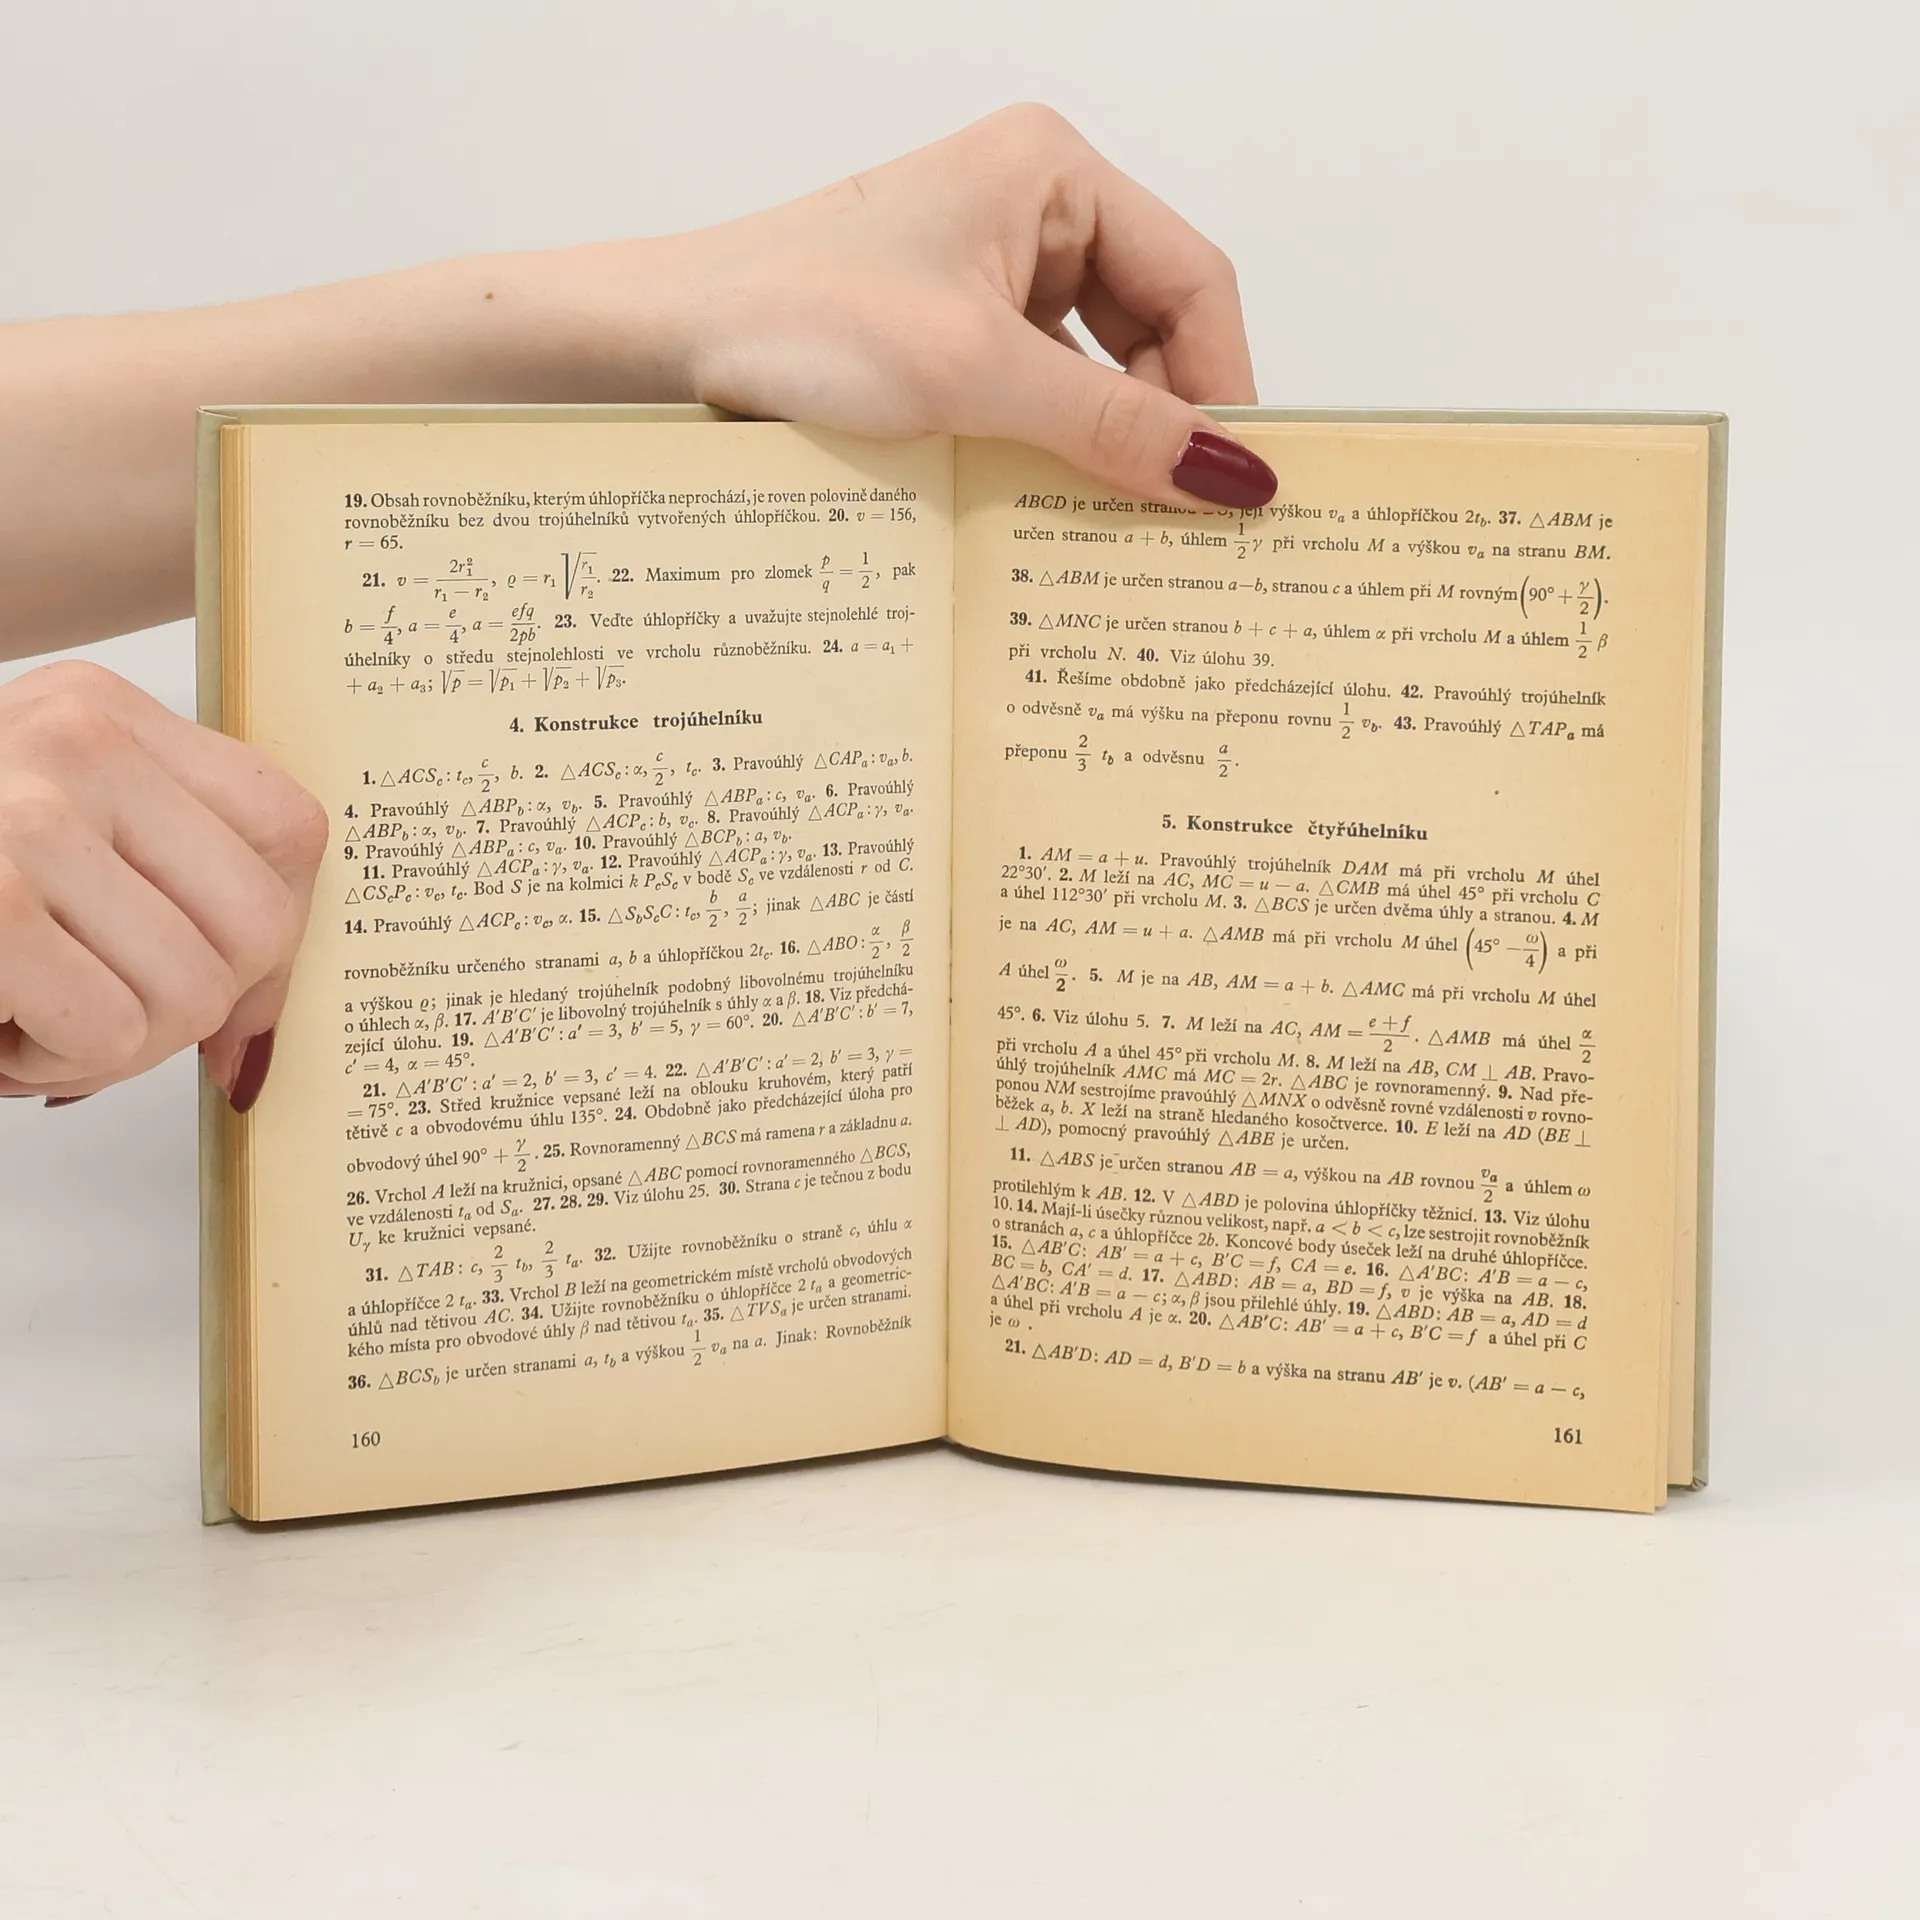 19. Obsah rovnoběžníku, kterým úhlopříčka neprochází, je roven polovině daného
rovnoběžníku bez dvou trojúhelníků vytvořených úhlopříčkou. 20. v = 156,
r = 65.
21. v = 2r₁²/(r₁ − r₂), ϱ = r₁ √(r₁/r₂). 22. Maximum pro zlomek p/q = 1/2, pak
b = f/4, a = e/4, a = efq/2pb. 23. Veďte úhlopříčky a uvažujte stejnolehlé troj-
úhelníky o středu stejnolehlosti ve vrcholu různoběžníku. 24. a = a₁ +
+ a₂ + a₃; √p = √p₁ + √p₂ + √p₃.
4. Konstrukce trojúhelníku
1. △ACS_c: t_c, c/2, b. 2. △ACS_c: α, c/2, t_c. 3. Pravoúhlý △CAP_a: v_a, b.
4. Pravoúhlý △ABP_b: α, v_b. 5. Pravoúhlý △ABP_a: c, v_a. 6. Pravoúhlý
△ABP_b: α, v_b. 7. Pravoúhlý △ACP_c: b, v_c. 8. Pravoúhlý △ACP_a: γ, v_a.
9. Pravoúhlý △ABP_a: c, v_a. 10. Pravoúhlý △BCP_b: a, v_b.
11. Pravoúhlý △ACP_a: γ, v_a. 12. Pravoúhlý △ACP_a: γ, v_a. 13. Pravoúhlý
△CS_cP_c: v_c, t_c. Bod S je na kolmici k P_cS_c v bodě S_c ve vzdálenosti r od C.
14. Pravoúhlý △ACP_c: v_c, α. 15. △S_bS_cC: t_c, b/2, a/2; jinak △ABC je částí
rovnoběžníku určeného stranami a, b a úhlopříčkou 2t_c. 16. △ABO: α/2, β/2
a výškou ϱ; jinak je hledaný trojúhelník podobný libovolnému trojúhelníku
o úhlech α, β. 17. A′B′C′ je libovolný trojúhelník s úhly α a β. 18. Viz předchá-
zející úlohu. 19. △A′B′C′: a′ = 3, b′ = 5, γ = 60°. 20. △A′B′C′: b′ = 7,
c′ = 4, α = 45°.
21. △A′B′C′: a′ = 2, b′ = 3, c′ = 4. 22. △A′B′C′: a′ = 2, b′ = 3, γ =
= 75°. 23. Střed kružnice vepsané leží na oblouku kruhovém, který patří
tětivě c a obvodovému úhlu 135°. 24. Obdobně jako předcházející úloha pro
obvodový úhel 90° + γ/2. 25. Rovnoramenný △BCS má ramena r a základnu a.
26. Vrchol A leží na kružnici, opsané △ABC pomocí rovnoramenného △BCS,
ve vzdálenosti t_a od S_a. 27. 28. 29. Viz úlohu 25. 30. Strana c je tečnou z bodu
U_γ ke kružnici vepsané.
31. △TAB: c, 2/3 t_b, 2/3 t_a. 32. Užijte rovnoběžníku o straně c, úhlu α
a úhlopříčce 2 t_a. 33. Vrchol B leží na geometrickém místě vrcholů obvodových
úhlů nad tětivou AC. 34. Užijte rovnoběžníku o úhlopříčce 2 t_a a geometric-
kého místa pro obvodové úhly β nad tětivou t_a. 35. △TVS_a je určen stranami.
36. △BCS_b je určen stranami a, t_b a výškou 1/2 v_a na a. Jinak: Rovnoběžník
160
ABCD je určen její výškou v_a a úhlopříčkou 2t_b. 37. △ABM je
určen stranou a + b, úhlem 1/2 γ při vrcholu M a výškou v_a na stranu BM.
38. △ABM je určen stranou a—b, stranou c a úhlem při M rovným (90° + γ/2).
39. △MNC je určen stranou b + c + a, úhlem α při vrcholu M a úhlem 1/2 β
při vrcholu N. 40. Viz úlohu 39.
41. Řešíme obdobně jako předcházející úlohu. 42. Pravoúhlý trojúhelník
o odvěsně v_a má výšku na přeponu rovnu 1/2 v_b. 43. Pravoúhlý △TAP_a má
přeponu 2/3 t_b a odvěsnu a/2.
5. Konstrukce čtyřúhelníku
1. AM = a + u. Pravoúhlý trojúhelník DAM má při vrcholu M úhel
22°30′. 2. M leží na AC, MC = u − a. △CMB má úhel 45° při vrcholu C
a úhel 112°30′ při vrcholu M. 3. △BCS je určen dvěma úhly a stranou. 4. M
je na AC, AM = u + a. △AMB má při vrcholu M úhel (45° − ω/4) a při
A úhel ω/2. 5. M je na AB, AM = a + b. △AMC má při vrcholu M úhel
45°. 6. Viz úlohu 5. 7. M leží na AC, AM = (e + f)/2. △AMB má úhel α/2
při vrcholu A a úhel 45° při vrcholu M. 8. M leží na AB, CM ⊥ AB. Pravo-
úhlý trojúhelník AMC má MC = 2r. △ABC je rovnoramenný. 9. Nad pře-
ponou NM sestrojíme pravoúhlý △MNX o odvěsně rovné vzdálenosti v rovno-
běžek a, b. X leží na straně hledaného kosočtverce. 10. E leží na AD (BE ⊥
⊥ AD), pomocný pravoúhlý △ABE je určen.
11. △ABS je určen stranou AB = a, výškou na AB rovnou v_a/2 a úhlem ω
protilehlým k AB. 12. V △ABD je polovina úhlopříčky těžnicí. 13. Viz úlohu
10. 14. Mají-li úsečky různou velikost, např. a < b < c, lze sestrojit rovnoběžník
o stranách a, c a úhlopříčce 2b. Koncové body úseček leží na druhé úhlopříčce.
15. △AB′C: AB′ = a + c, B′C = f, CA = e. 16. △A′BC: A′B = a − c,
BC = b, CA′ = d. 17. △ABD: AB = a, BD = f, v je výška na AB. 18.
△A′BC: A′B = a − c; α, β jsou přilehlé úhly. 19. △ABD: AB = a, AD = d
a úhel při vrcholu A je α. 20. △AB′C: AB′ = a + c, B′C = f a úhel při C
je ω .
21. △AB′D: AD = d, B′D = b a výška na stranu AB′ je v. (AB′ = a − c,
161